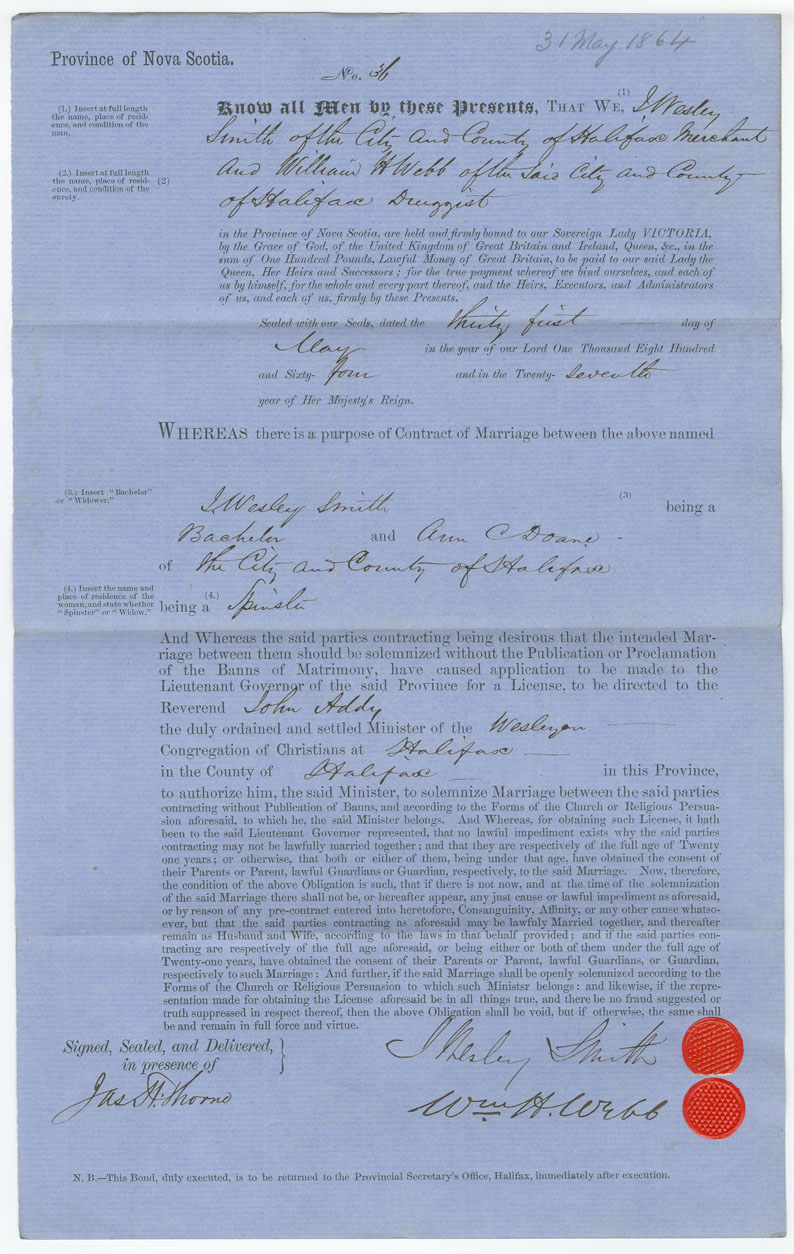 31 May 1864
Province of Nova Scotia.
No. 36
Know all Men by these Presents, THAT WE, (1) J. Wesley
Smith of the City and County of Halifax Merchant
(2) And William H Webb of the Said City and County
of Halifax Druggist
(1.) Insert at full length
the name, place of resid-
ence, and condition of the
man.
(2.) Insert at full length
the name, place of resid-
ence, and condition of the
surety.
in the Province of Nova Scotia, are held and firmly bound to our Sovereign Lady VICTORIA,
by the Grace of God, of the United Kingdom of Great Britain and Ireland, Queen, &c., in the
sum of One Hundred Pounds, Lawful Money of Great Britain, to be paid to our said Lady the
Queen, Her Heirs and Successors; for the true payment whereof we bind ourselves, and each of
us by himself, for the whole and every part thereof, and the Heirs, Executors, and Administrators
of us, and each of us, firmly by these Presents.
Sealed with our Seals, dated the thirty first day of
May in the year of our Lord One Thousand Eight Hundred
and Sixty- four and in the Twenty- seventh
year of Her Majesty's Reign.
WHEREAS there is a purpose of Contract of Marriage between the above named
(3.) Insert "Bachelor"
or "Widower."
J. Wesley Smith (3) being a
Bachelor and Ann C Doane
of the City and County of Halifax
(4.) Insert the name and
place of residence of the
woman, and state whether
"Spinster" or "Widow."
being a (4.) Spinster
And Whereas the said parties contracting being desirous that the intended Mar-
riage between them should be solemnized without the Publication or Proclamation
of the Banns of Matrimony, have caused application to be made to the
Lieutenant Governor of the said Province for a License, to be directed to the
Reverend John Addy
the duly ordained and settled Minister of the Wesleyan
Congregation of Christians at Halifax
in the County of Halifax in this Province,
to authorize him, the said Minister, to solemnize Marriage between the said parties
contracting without Publication of Banns, and according to the Forms of the Church or Religious Persua-
sion aforesaid, to which he, the said Minister belongs. And Whereas, for obtaining such License, it hath
been to the said Lieutenant Governor represented, that no lawful impediment exists why the said parties
contracting may not be lawfully married together; and that they are respectively of the full age of Twenty
one years; or otherwise, that both or either of them, being under that age, have obtained the consent of
their Parents or Parent, lawful Guardians or Guardian, respectively, to the said Marriage. Now, therefore,
the condition of the above Obligation is such, that if there is not now, and at the time of the solemnization
of the said Marriage there shall not be, or hereafter appear, any just cause or lawful impediment as aforesaid,
or by reason of any pre-contract entered into heretofore, Consanguinity, Affinity, or any other cause whatso-
ever, but that the said parties contracting as aforesaid may be lawfuly Married together, and thereafter
remain as Husband and Wife, according to the laws in that behalf provided; and if the said parties con-
tracting are respectively of the full age aforesaid, or being either or both of them under the full age of
Twenty-one years, have obtained the consent of their Parents or Parent, lawful Guardians, or Guardian,
respectively to such Marriage: And further, if the said Marriage shall be openly solemnized according to the
Forms of the Church or Religious Persuasion to which such Minister belongs: and likewise, if the repre-
sentation made for obtaining the License aforesaid be in all things true, and there be no fraud suggested or
truth suppressed in respect thereof, then the above Obligation shall be void, but if otherwise, the same shall
be and remain in full force and virtue.
Signed, Sealed, and Delivered,
in presence of
J Wesley Smith
Jas H. Thorne
Wm H. Webb
N. B.—This Bond, duly executed, is to be returned to the Provincial Secretary's Office, Halifax, immediately after execution.